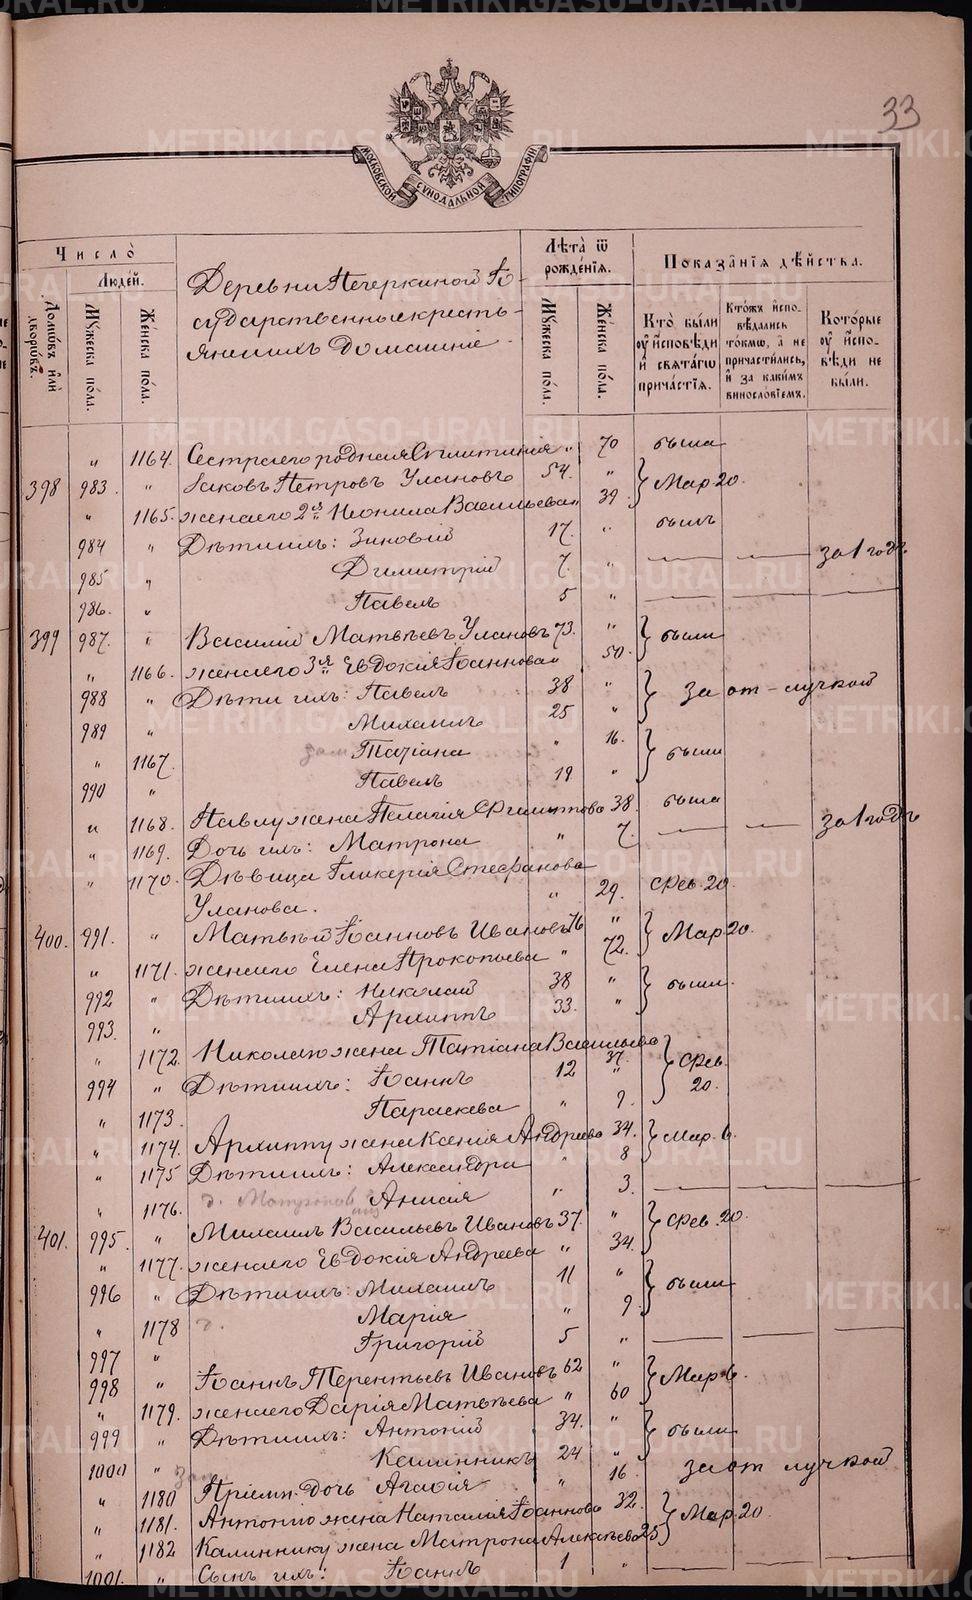 33
МОСКОВСКОЙ СѴНОДАЛЬНОЙ ТИПОГРАФІИ
Число̀
Людей.
Домѡвъ и҆лѝ дворѡвъ.
Мꙋжеска пола.
Женска пола.
Деревни Печеркиной Го-
сударственные кресть-
яне и ихъ домашніе
Лѣта ѿ рожденїѧ.
Мꙋжеска пола.
Женска пола.
Показанїѧ дѣйства.
Кто̀ были ᲂу҆ и҆сповѣди и҆ свѧтагѡ причастїѧ.
Ктожъ и҆спо-вѣдались токмѡ, а҆ не причастились, и҆ за какимъ винословїемъ.
Которые ᲂу҆ и҆спо-вѣди не были.
" 1164. Сестра его родная " 70 была
398 983. " Іаковъ Петровъ Улановъ 54. " Мар 20.
" 1165. жена его 2я Неонила Васильева 39
984 " Дѣти ихъ: Зиновій 17. " былъ
985 " Димитрій 7. " за 1 годъ
986. " Павелъ 5 "
399 987. " Василій Матвѣевъ Улановъ 73. " были
" 1166. жена его 3я Евдокія Іоаннова 50.
988 " Дѣти ихъ: Павелъ 38 " за от-лучкой
989 " Михаилъ 25 "
" 1167. Татіана " 16. были
990 " Павелъ 19 "
" 1168. Павлу жена Пелагія Филиппова 38. была
" 1169. Дочь ихъ: Матрона " 7. за 1 годъ
" 1170. Дѣвица Гликерія Стефанова
Уланова. " 29. Фев. 20.
400. 991. " Матвѣй Іоанновъ Ивановъ 76 " Мар 20.
" 1171. жена его Елена Прокопьева " 72.
992 " Дѣти ихъ: Николай 38 " были
993. " Архиппъ 33. "
" 1172. Николаю жена Татіана Васильева 37. Фев. 20.
994 " Дѣти ихъ: Іоаннъ 12 "
" 1173 Параскева " 9.
" 1174. Архиппу жена Ксенія Андреева 34. Мар. 6.
" 1175 Дѣти ихъ: Александра " 8
" 1176. Анисія " 3.
401. 995. " Михаилъ Васильевъ Ивановъ 37. " Фев. 20.
" 1177. жена его Евдокія Андреева " 34.
996 " Дѣти ихъ: Михаилъ 11 " были
" 1178 Марія " 9.
997 " Григорій 5 "
998 " Іоаннъ Терентьевъ Ивановъ 62 " Мар 6.
" 1179. жена его Дарія Матвѣева " 60
999 " Дѣти ихъ: Антоній 34. " были
1000 " Калинникъ 24 " за от лучкой
" 1180 Пріемн. дочь Агафія " 16
" 1181. Антонію жена Наталія Іоаннова 32. Мар. 20.
" 1182 Калиннику жена Матрона Алексѣева 25
1001. " Сынъ ихъ: Іоаннъ 1 "
METRIKI.GASO-URAL.RU